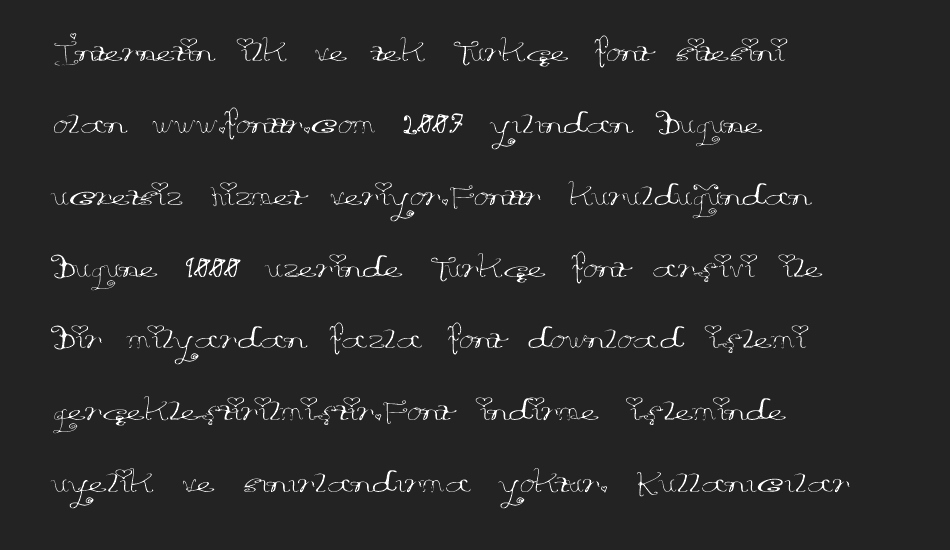 İnternetin ilk ve tek Turkçe font sitesini
olan www.fonttr.com 2007 yılından Bugune
ucretsiz hizmet veriyor.Fonttr Kurulduğundan
Bugune 1000 uzerinde Turkçe font arşivi ile
Bir milyardan fazla font download işlemi
gerçekleştirilmiştir.Font indirme işleminde
uyelik ve sınırlandırma yoktur. Kullanıcılar